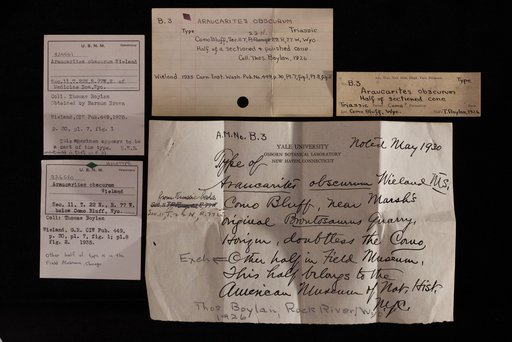 U.S.N.M.
Araucarites obscurum Wieland
Sec. 11, T. 22N, R. 77W,
Medicine Bow, Wyo.
Coll: Thomas Boylan
Wieland, CIW Pub. 449, 1935.
p. 30, pl. 7, fig. 1
This specimen appears to be
a part of the type.
B.3
ARAUCARITES OBSCURUM
Type
Triassic
Como Bluff, Sec. 11 T. 22 N., R. 77 W., Wyo.
Half of a sectioned & polished cone
Coll. Thos. Boylan, 1926
Wieland 1935 Carn. Inst. Wash. Pub. No. 449, p. 30, Pl. 7, fig. 1, Pl. 8, fig. 2
B.3
Type
ARAUCARITES OBSCURUM
Half of sectioned cone
Triassic
Como
Loc. Como Bluff, Wyo.
T. Boylan, 1926
Araucarites obscurum
Wieland
Sec. 11, T. 22 N., R. 77 W.
below Como Bluff, Wyo.
Coll: Thomas Boylan
Wieland, G.R. CIW Pub. 449,
p. 30, pl. 7, fig. 1; pl. 8
Fig. 2. 1935.
Other half of type is in the
Field Museum, Chicago
A.M. No. B.3
YALE UNIVERSITY
OSBORN BOTANICAL LABORATORY
NEW HAVEN, CONNECTICUT
Noted May 1930
Type of
Araucarites obscurum Wieland MS,
Como Bluff, near Marsh's
original Brontosaurus Quarry,
Horizon, doubtless the Como,
Exch
Other half in Field Museum,
This half belongs to the
American Museum of Nat. Hist.
Thos. Boylan, Rock River, Wyo.
1926